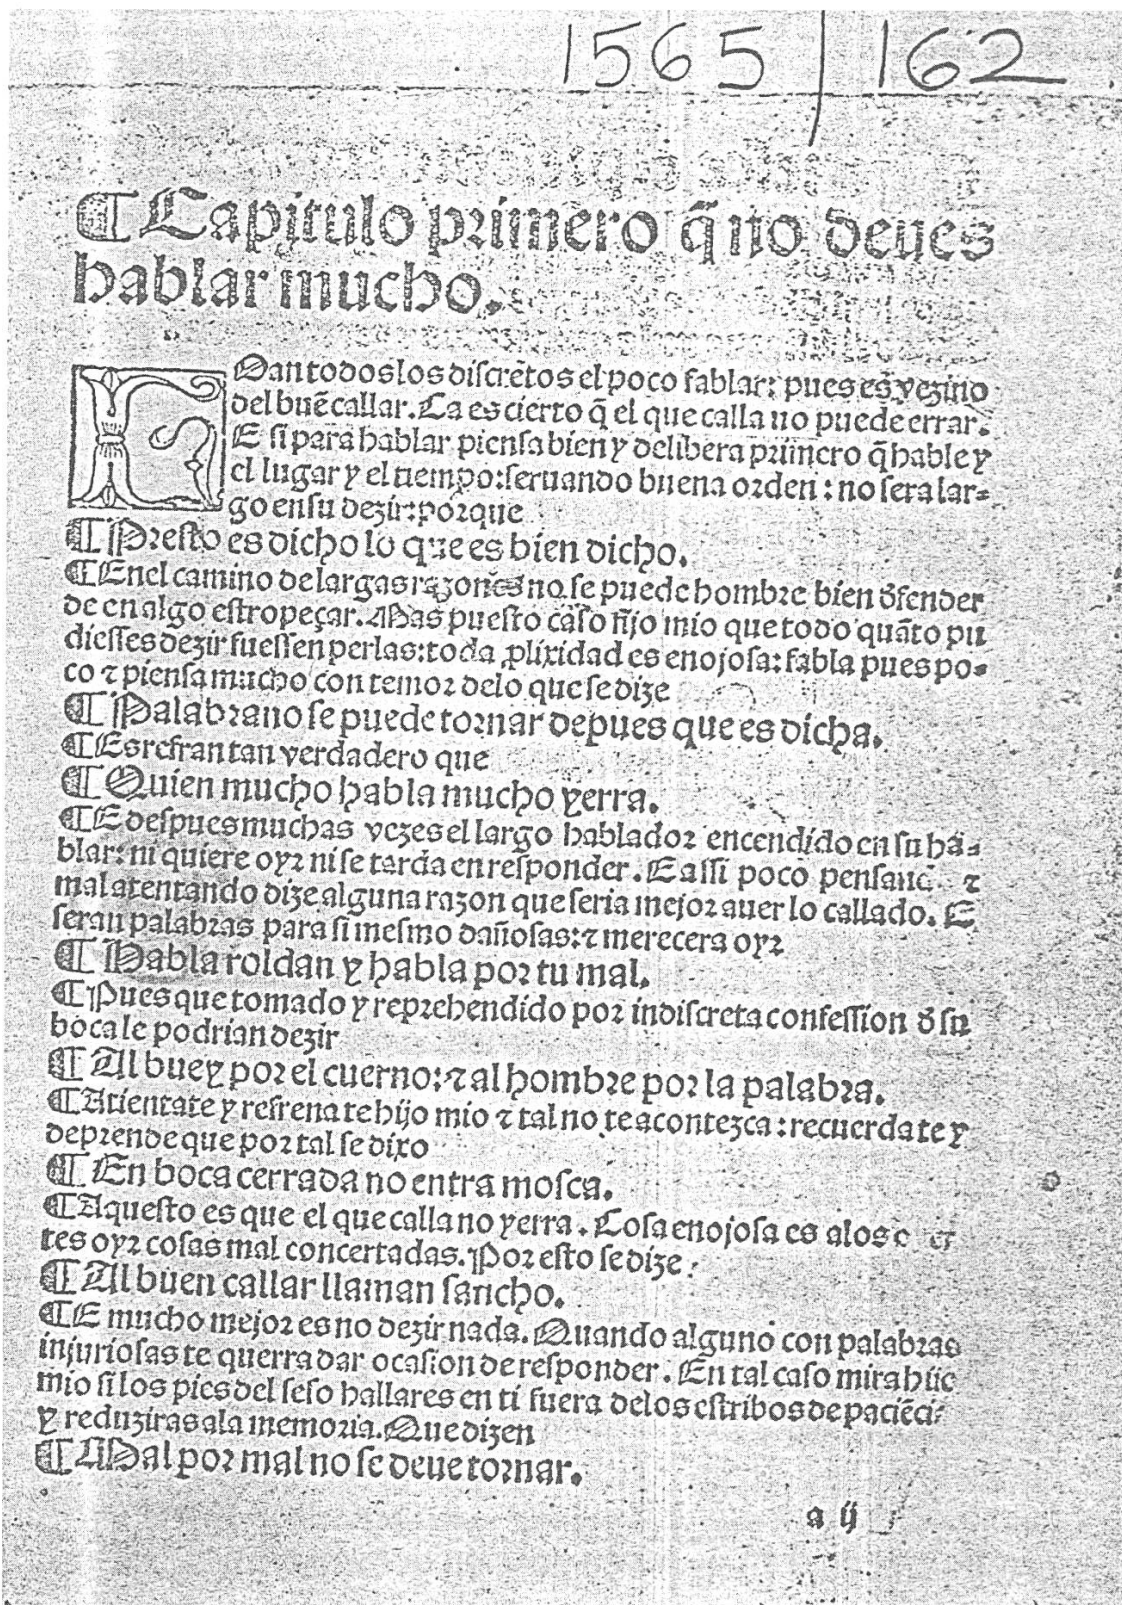 1565 | 162
¶ Capitulo primero q̃ no deues
hablar mucho.
LOan todos los discretos el poco fablar: pues es vezino
del buẽ callar. Ca es cierto q̃ el que calla no puede errar.
E si para hablar piensa bien y delibera primero q̃ hable y
el lugar y el tiempo: seruando buena orden: no sera lar-
go en su dezir: porque
¶ Presto es dicho lo que es bien dicho.
¶ Enel camino de largas razones no se puede hombre bien d̃fender
de en algo estropeçar. Mas puesto caso hijo mio que todo quãto pu
diesses dezir fuessen perlas: toda ꝓlixidad es enojosa: fabla pues po-
co ⁊ piensa mucho con temor delo que se dize
¶ Palabra no se puede tornar depues que es dicha.
¶ Es refran tan verdadero que
¶ Quien mucho habla mucho yerra.
¶ E despues muchas vezes el largo hablador encendido en su ha-
blar: ni quiere oyr ni se tarda en responder. E assi poco ⁊
mal atentando dize alguna razon que seria mejor auer lo callado. E
seran palabras para si mesmo dañosas: ⁊ merecera oyr
¶ Habla roldan y habla por tu mal.
¶ Pues que tomado y reprehendido por indiscreta confession d̃ su
boca le podrian dezir
¶ Al buey por el cuerno: ⁊ al hombre por la palabra.
¶ Atientate y refrena te hijo mio ⁊ tal no te acontezca: recuerda te y
deprende que por tal se dixo
¶ En boca cerrada no entra mosca.
¶ Aquesto es que el que calla no yerra. Cosa enojosa es alos
tes oyr cosas mal concertadas. Por esto se dize:
¶ Al buen callar llaman sancho.
¶ E mucho mejor es no dezir nada. Quando alguno con palabras
injuriosas te querra dar ocasion de responder. En tal caso mira
mio si los pies del seso hallares en ti fuera delos estribos de paciẽci
y reduziras ala memoria. Que dizen
¶ Mal por mal no se deue tornar.
a ij